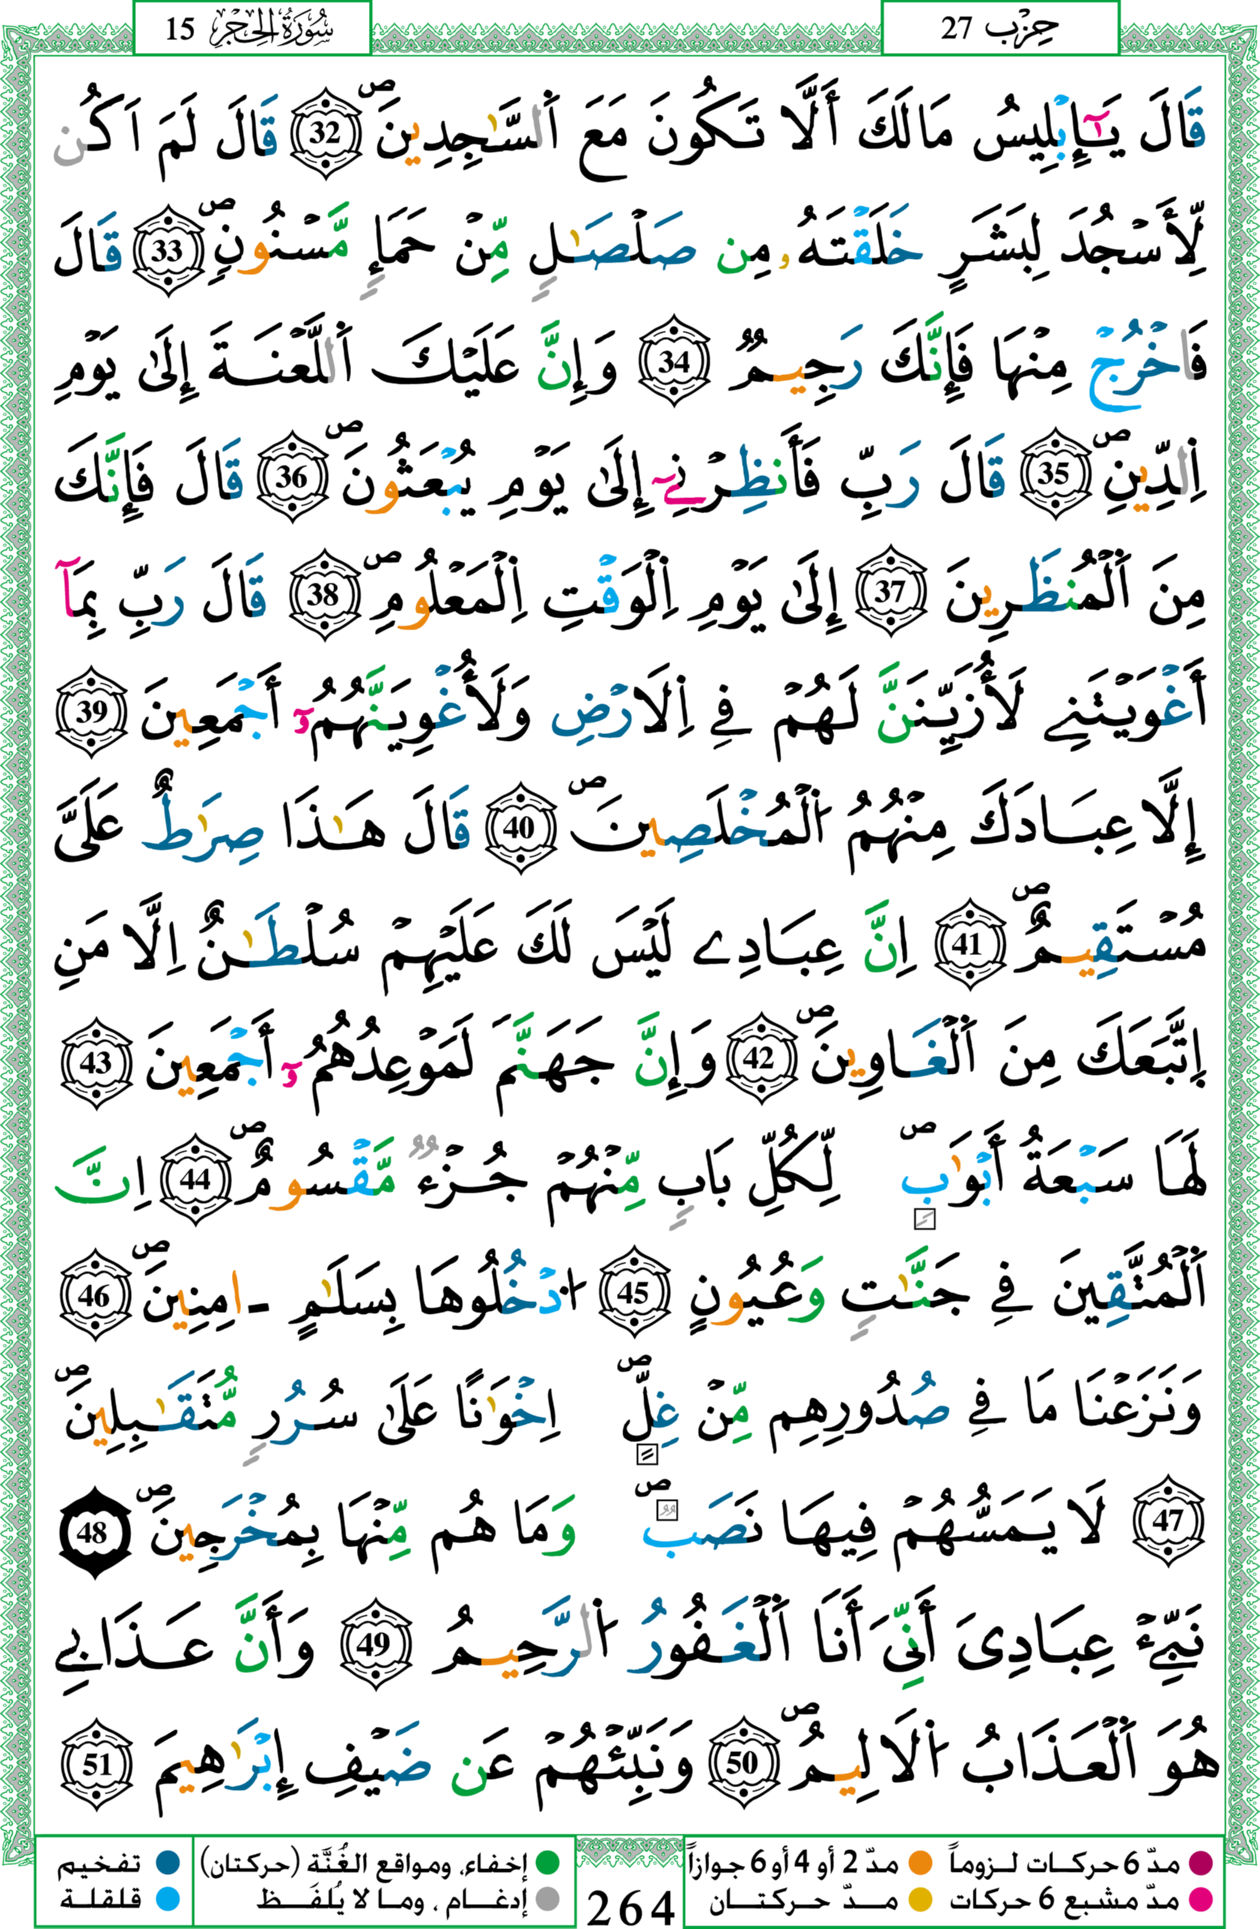 سُورَةُ الحِجْرِ 15
حِزْب 27
قَالَ يَٰٓإِبْلِيسُ مَالَكَ أَلَّا تَكُونَ مَعَ اَ۬لسَّٰجِدِينَۖ 32 قَالَ لَمَ اَكُن
لِّأَسْجُدَ لِبَشَرٍ خَلَقْتَهُۥ مِن صَلْصَٰلٍ مِّنْ حَمَإٍ مَّسْنُونٍۖ 33 قَالَ
فَاخْرُجْ مِنْهَا فَإِنَّكَ رَجِيمٌ 34 وَإِنَّ عَلَيْكَ اَ۬للَّعْنَةَ إِلَىٰ يَوْمِ
اِ۬لدِّينِۖ 35 قَالَ رَبِّ فَأَنظِرْنِےٓ إِلَىٰ يَوْمِ يُبْعَثُونَۖ 36 قَالَ فَإِنَّكَ
مِنَ اَ۬لْمُنظَرِينَ 37 إِلَىٰ يَوْمِ اِ۬لْوَقْتِ اِ۬لْمَعْلُومِۖ 38 قَالَ رَبِّ بِمَآ
أَغْوَيْتَنِے لَأُزَيِّنَنَّ لَهُمْ فِے اِ۬لَارْضِ وَلَأُغْوِيَنَّهُمُۥٓ أَجْمَعِينَ 39
إِلَّا عِبَادَكَ مِنْهُمُ اُ۬لْمُخْلَصِينَۖ 40 قَالَ هَٰذَا صِرَٰطٌ عَلَيَّ
مُسْتَقِيمٌۖ 41 اِنَّ عِبَادِے لَيْسَ لَكَ عَلَيْهِمْ سُلْطَٰنٌ اِلَّا مَنِ
اِ۪تَّبَعَكَ مِنَ اَ۬لْغَاوِينَۖ 42 وَإِنَّ جَهَنَّمَ لَمَوْعِدُهُمُۥٓ أَجْمَعِينَ 43
لَهَا سَبْعَةُ أَبْوَٰبٍۖ لِّكُلِّ بَابٍ مِّنْهُمْ جُزْءٌ مَّقْسُومٌۖ 44 اِنَّ
اَ۬لْمُتَّقِينَ فِے جَنَّٰتٍ وَعُيُونٍ 45 اُ۟دْخُلُوهَا بِسَلَٰمٍ ـ امِنِينَۖ 46
وَنَزَعْنَا مَا فِے صُدُورِهِم مِّنْ غِلٍّۖ اِخْوَٰنًا عَلَىٰ سُرُرٍ مُّتَقَٰبِلِينَۖ
47 لَا يَمَسُّهُمْ فِيهَا نَصَبٌۖ وَمَا هُم مِّنْهَا بِمُخْرَجِينَۖ 48
نَبِّۓْ عِبَادِىَ أَنِّيَ أَنَا اَ۬لْغَفُورُ اُ۬لرَّحِيمُ 49 وَأَنَّ عَذَابِے
هُوَ اَ۬لْعَذَابُ اُ۬لَالِيمُۖ 50 وَنَبِّئْهُمْ عَن ضَيْفِ إِبْرَٰهِيمَ 51
مدّ 6 حركات لـزوماً مدّ 2 أو 4 أو 6 جوازاً إخفاء، ومواقع الغُنَّة (حركتان) تفخيم
مدّ مشبع 6 حركات مـدّ حركتـان إدغـام ، ومـا لا يُلفَـظ قلقلة
264